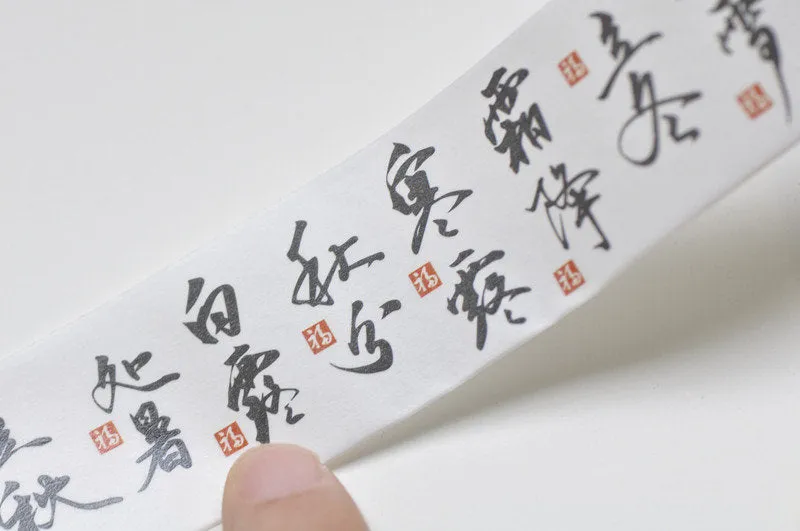 立秋
福
如暑
福
白露
福
秋分
福
寒露
福
霜降
福
立冬
福
雪